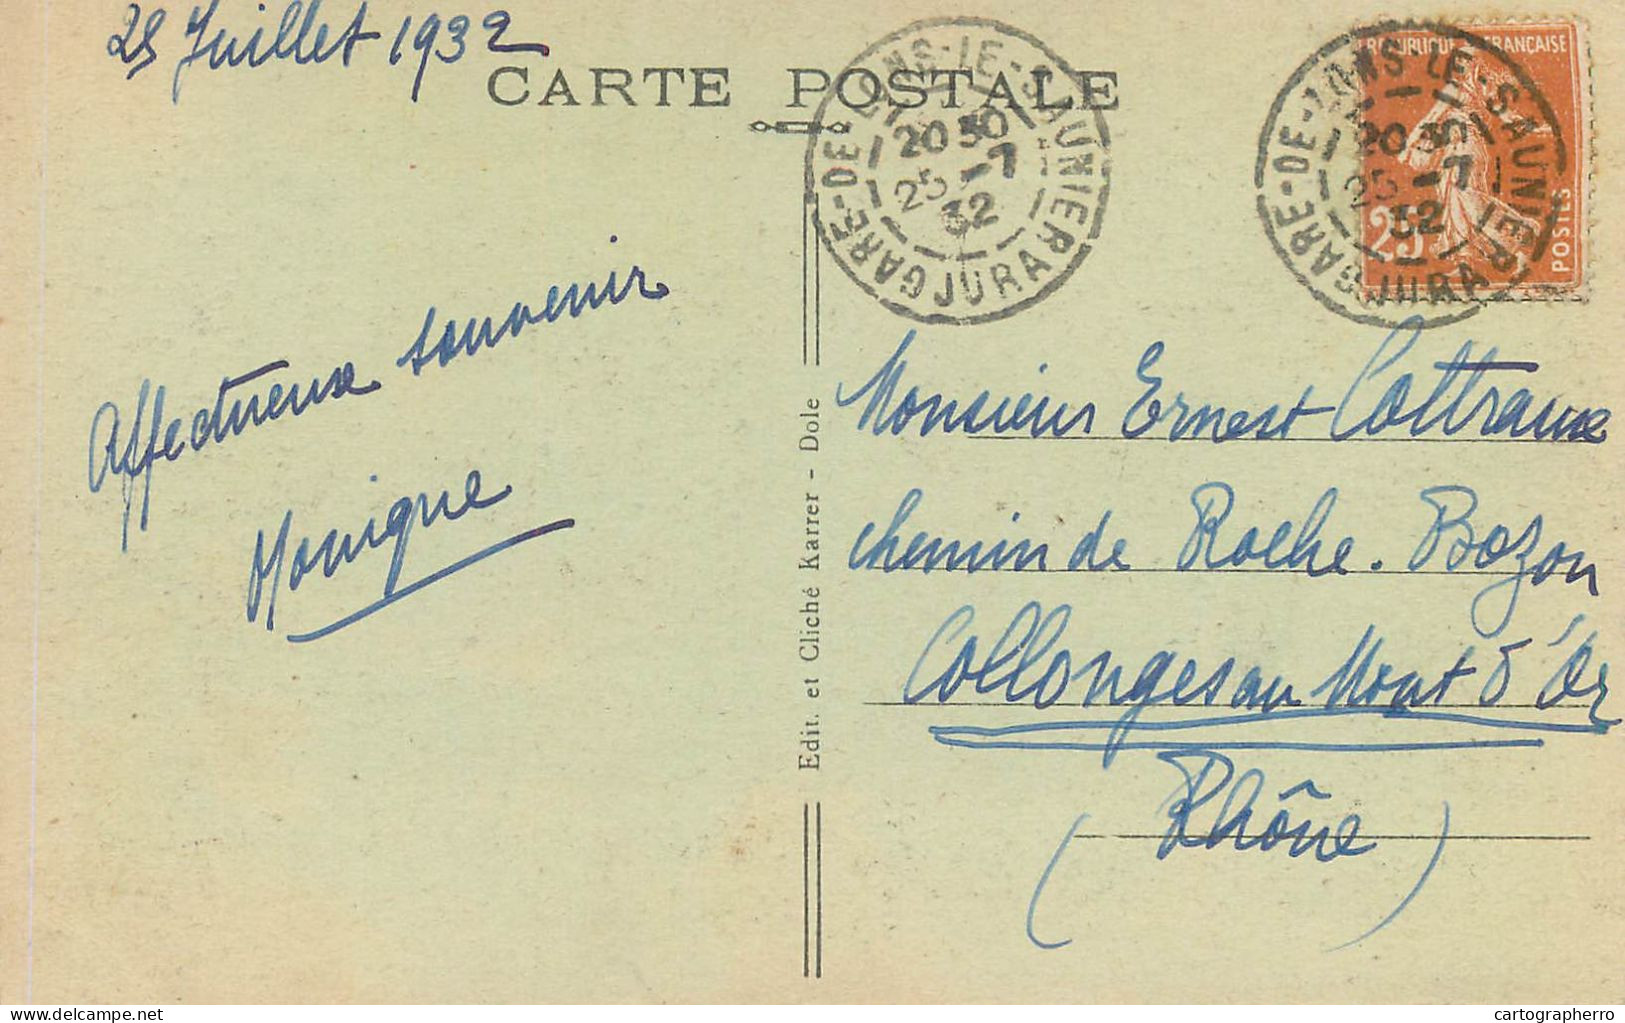 25 Juillet 1932
CARTE POSTALE
GARE-DE-LONS-LE-SAUNIER
20 30
25 -7
32
JURA
GARE-DE-LONS-LE-SAUNIER
20 30
25 -7
32
JURA
REPUBLIQUE FRANÇAISE
25c
POSTES
Affectueux souvenir
Monique
Edit. et Cliché Karrer - Dole
Monsieur Ernest Cottraux
chemin de Roche. Bozon
Collonges au Mont d'Or
(Rhône)
cartographerro